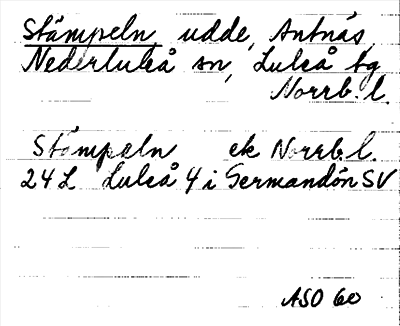 Stämpeln, udde, Antnäs,
Nederluleå sn, Luleå tg
Norrb. l.
Stämpeln ek Norrb. l.
24L Luleå 4 i Germandön SV
ASO 60